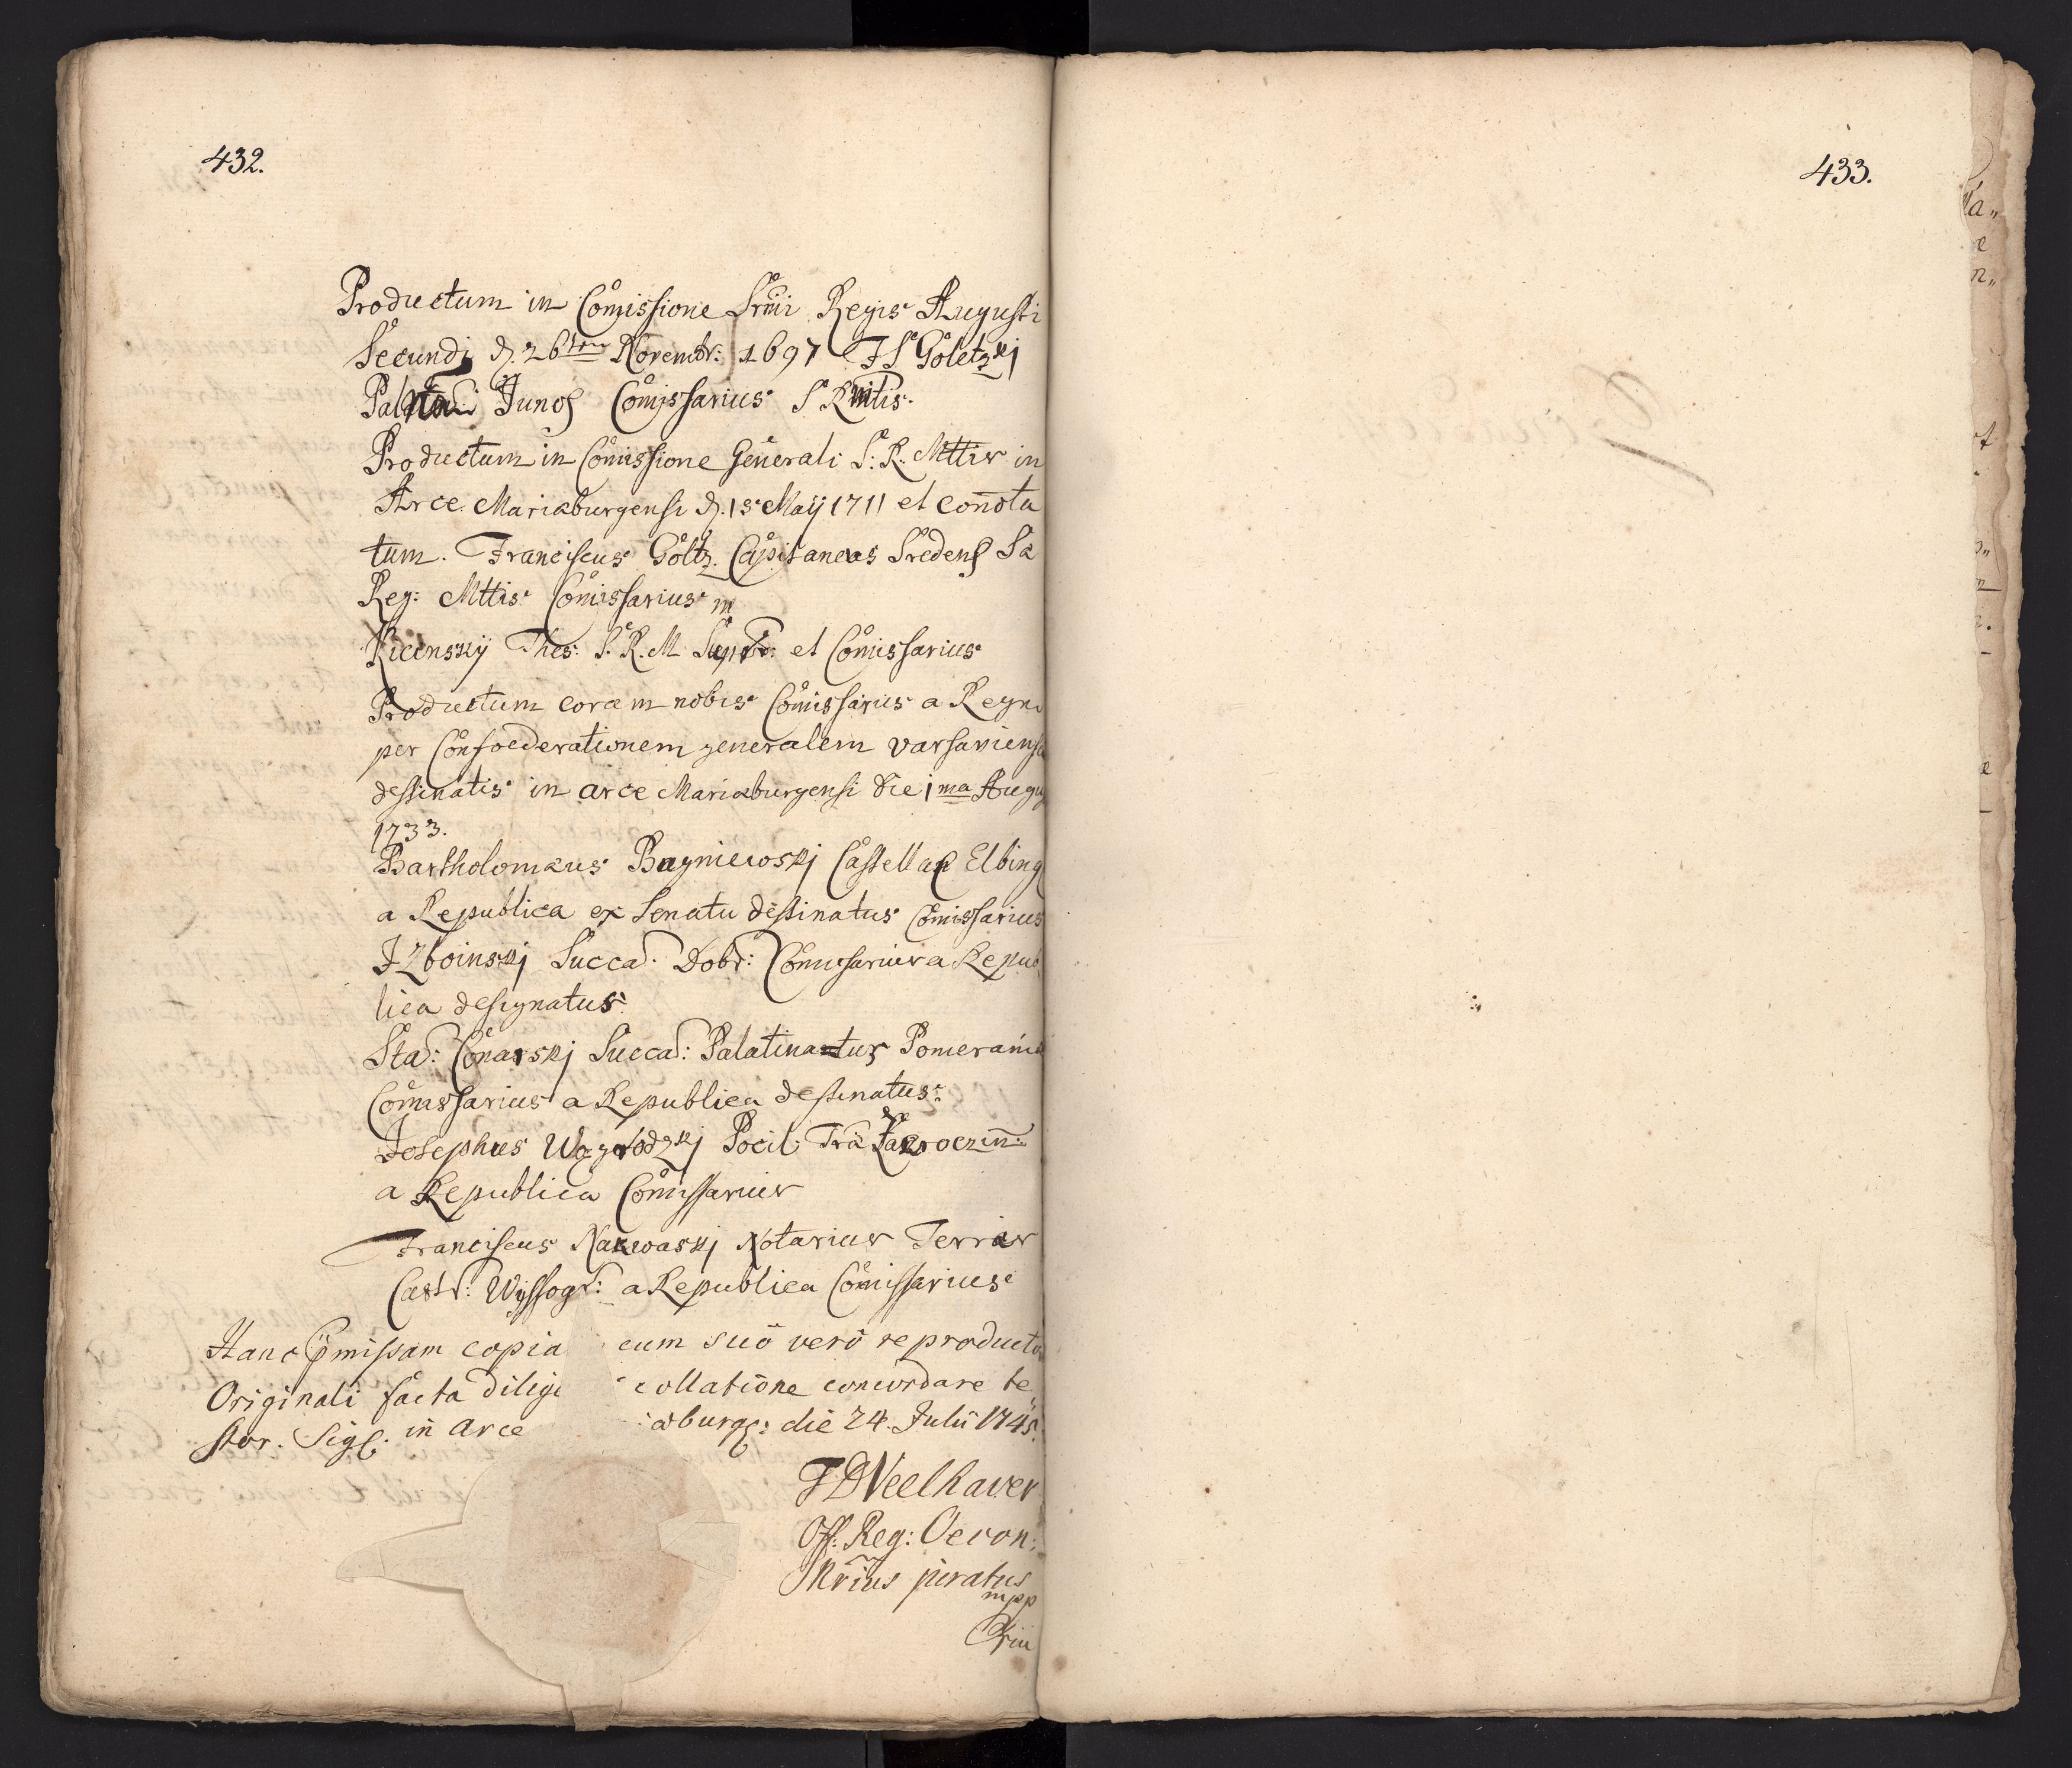 432.
Productum in Comissione Srmi Regis Augusti
Secundi d. 26 Novembr: 1697 JS Goletzkj
Junos Comissarius S R Mtis.
Productum in Comissione Generali S: R. Mttis in
Arce Mariaeburgensi d. 15 Maij 1711 et connota
tum. Franciscus Goltz Capitaneus Sredens Sa
Reg: Mttis Comissarius
Kicenskÿ Thes: S. R. M. et Comissarius
Productum coram nobis Comissariis a Regno
per Confoederationem generalem varsaviens
destinatis in arce Mariaeburgensi die 1ma Augus
1733.
Bartholomæus Bagniewskj Castellan Elbing
a Republica ex Senatu destinatus Comissarius
Izboinskj Succa. Dobr: Comissarius a Repub
lica designatus
Sta: Conarskj Succa: Palatinatus Pomerania
Comissarius a Republica destinatus
Josephus Wagrodzkj Pocil: Zakroczin:
a Republica Comissarius
Franciscus Nakwaskj Notarius Terris
Castr: Wÿssogr: a Republica Comissarius
Hanc pmissam copia cum suo vero reproducto
Originali facta dilige collatione concordare te
stor. Sigl. in Arce aburg: die 24. Julii 1745.
Off: Reg: Oecon:
juratus
mpp
433.